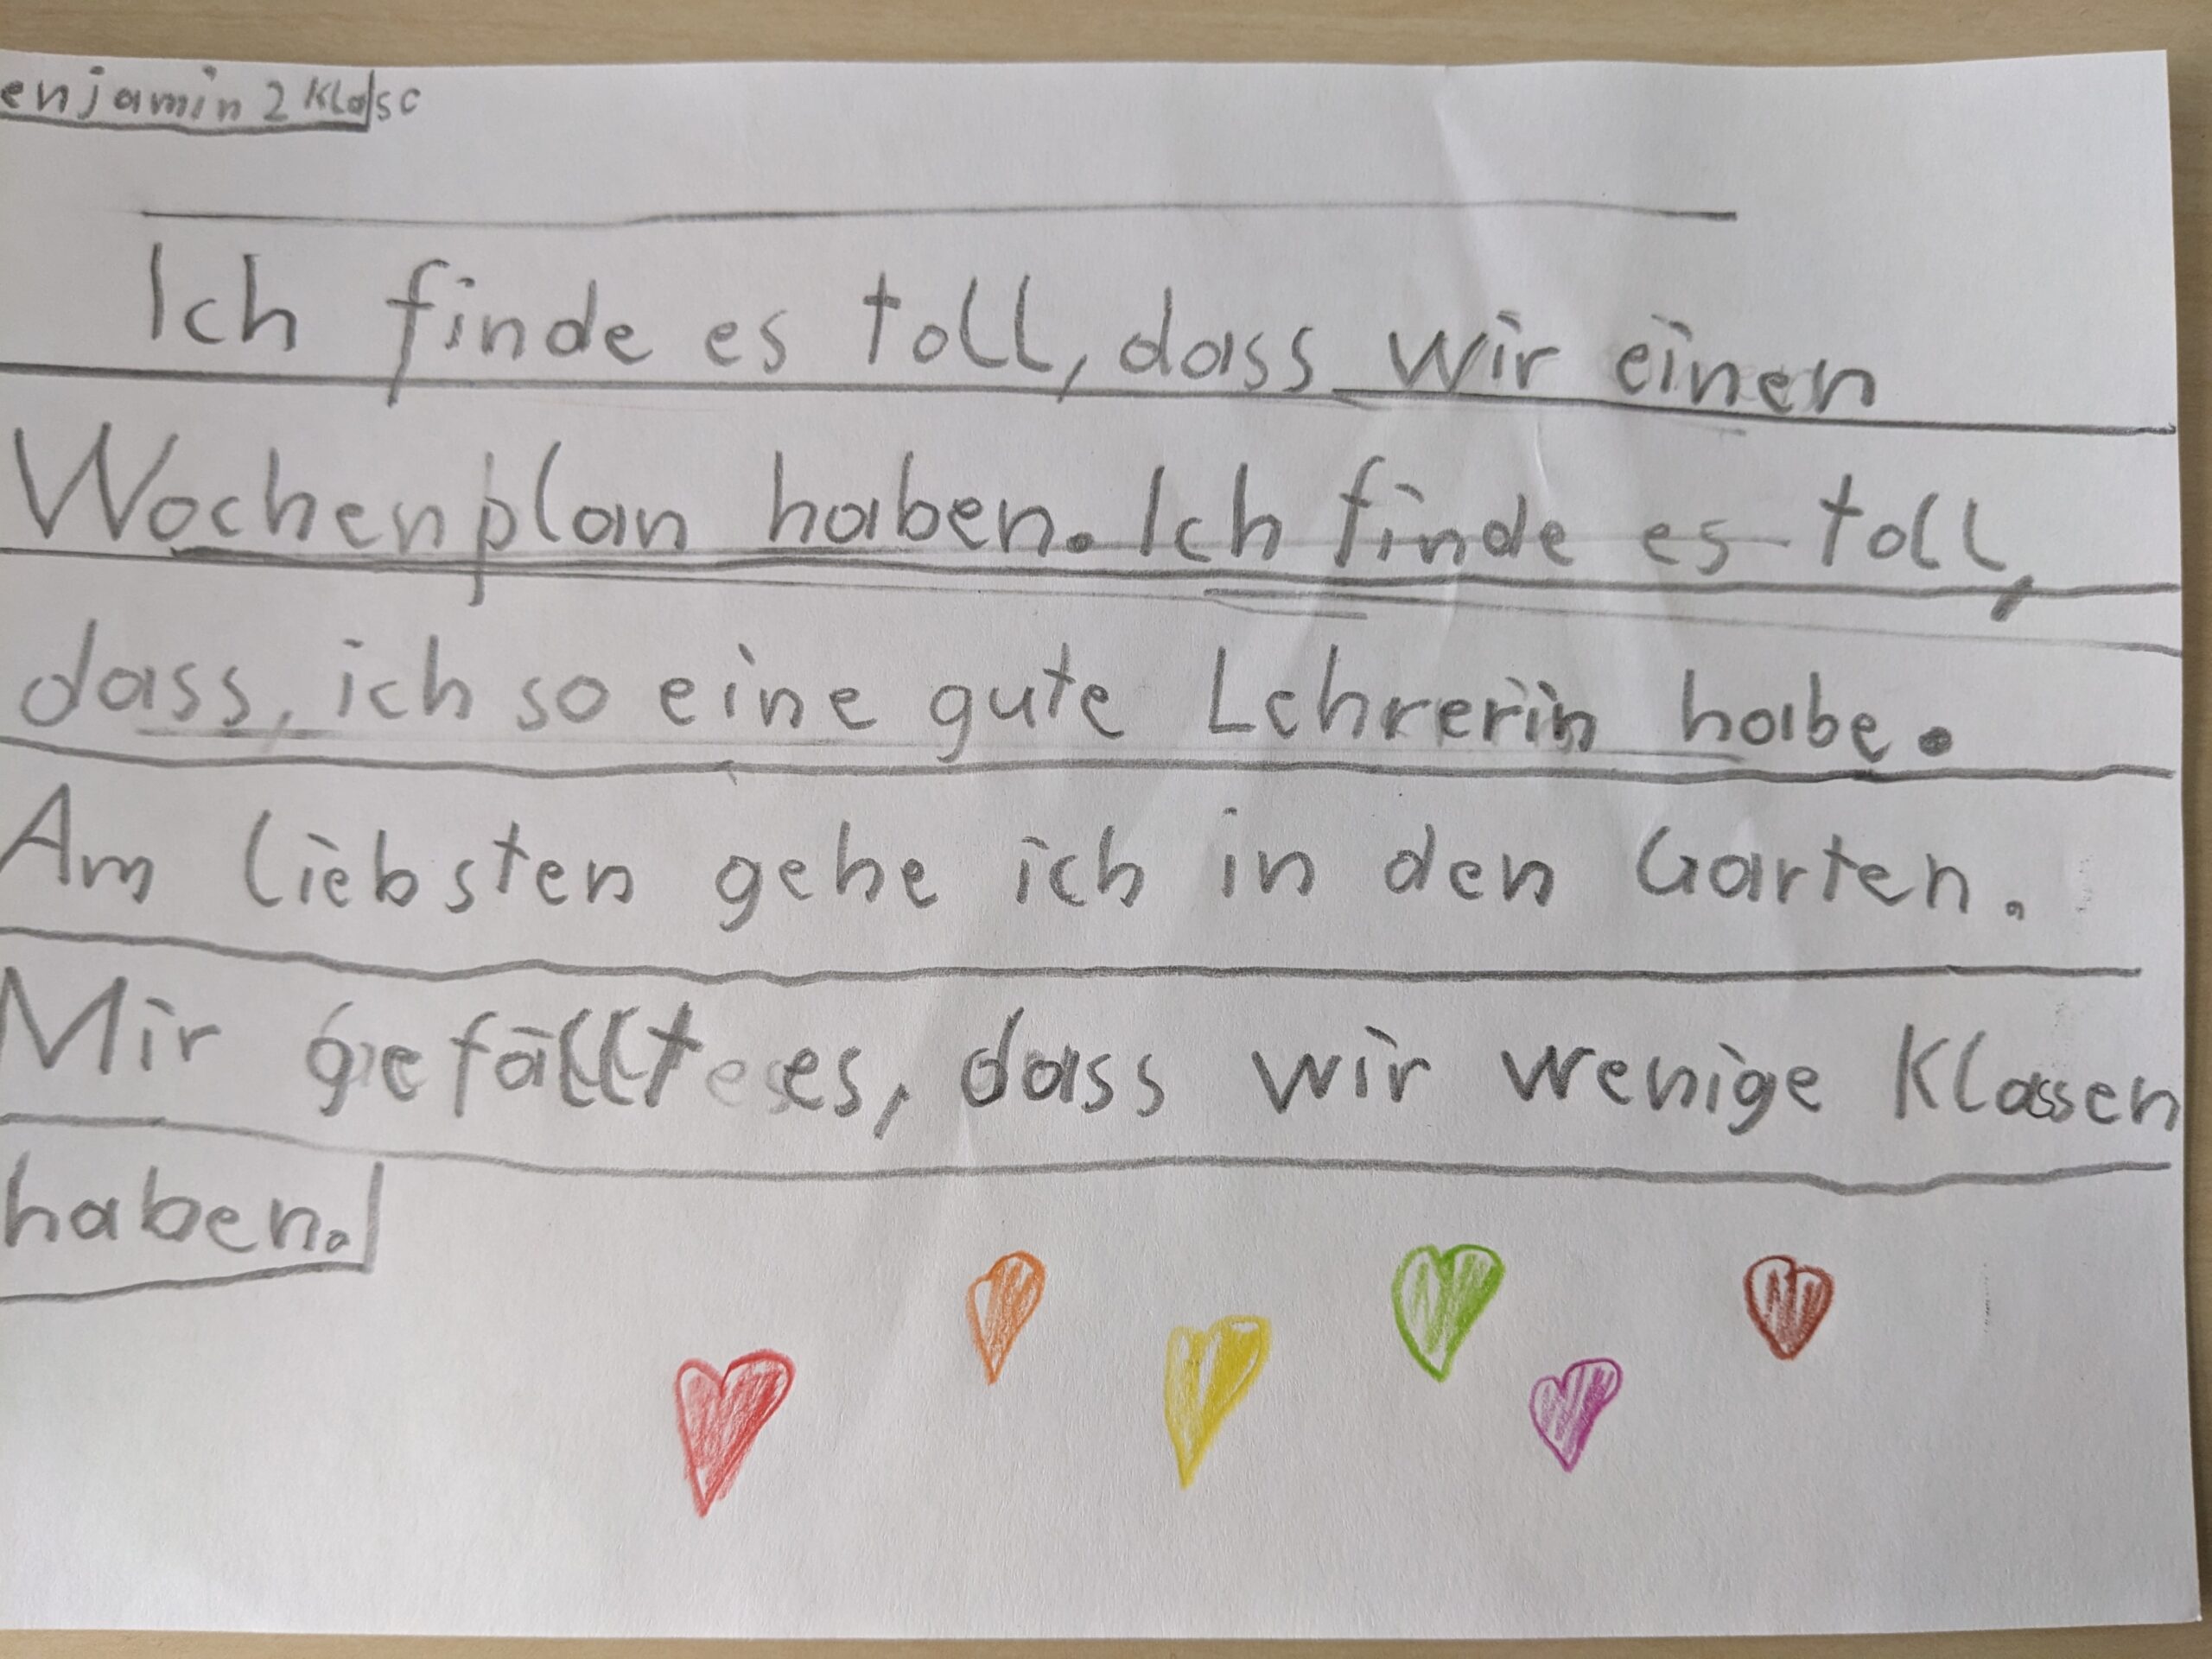 enjamin 2 Klasse
Ich finde es toll, dass wir einen
Wochenplan haben. Ich finde es toll,
dass, ich so eine gute Lehrerin habe.
Am liebsten gehe ich in den Garten.
Mir gefällt es, dass wir wenige Klassen
haben.